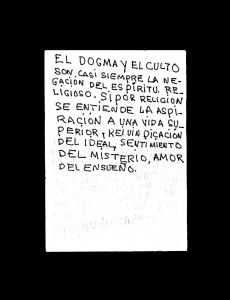 EL DOGMA Y EL CULTO
SON CASI SIEMPRE LA NE-
GACIÓN DEL ESPÍRITU RE-
LIGIOSO. SI POR RELIGIÓN
SE ENTIENDE LA ASPI-
RACIÓN A UNA VIDA SU-
PERIOR, REIVINDICACIÓN
DEL IDEAL, SENTIMIENTO
DEL MISTERIO, AMOR
DEL ENSUEÑO.